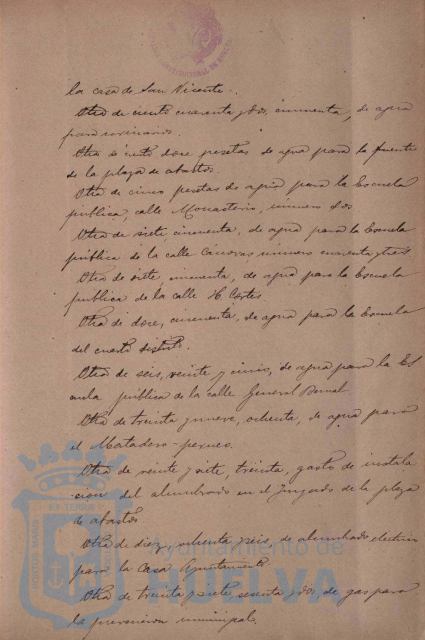 la casa de San Vicente.
Otra de ciento cuarenta y dos, cincuenta, de agua
para urinarios.
Otra ciento doce pesetas de agua para la fuente
de la plaza de abastos.
Otra de cinco pesetas de agua para la Escuela
pública, calle Monasterio, número dos
Otra de siete, cincuenta, de agua para la Escuela
pública de la calle Cánovas número cuarenta y tres
Otra de siete, cincuenta, de agua para la Escuela
publica de la calle H. Cortes
Otra de doce, cincuenta, de agua para la Escuela
del cuarto distrito.
Otra de seis, veinte y cinco, de agua para la Es
cuela pública de la calle General Bernal
Otra de treinta y nueve, ochenta, de agua para
el Matadero
Otra de veinte y siete, treinta, gasto de instala
cion del alumbrado en el Juzgado de la plaza
de abastos
Otra de diez, ochenta y seis, de alumbrado electrico
para la Casa Ayuntamiento
Otra de treinta y siete, sesenta y dos, de gas para
la prevencion municipal.
Ayuntamiento de
HUELVA